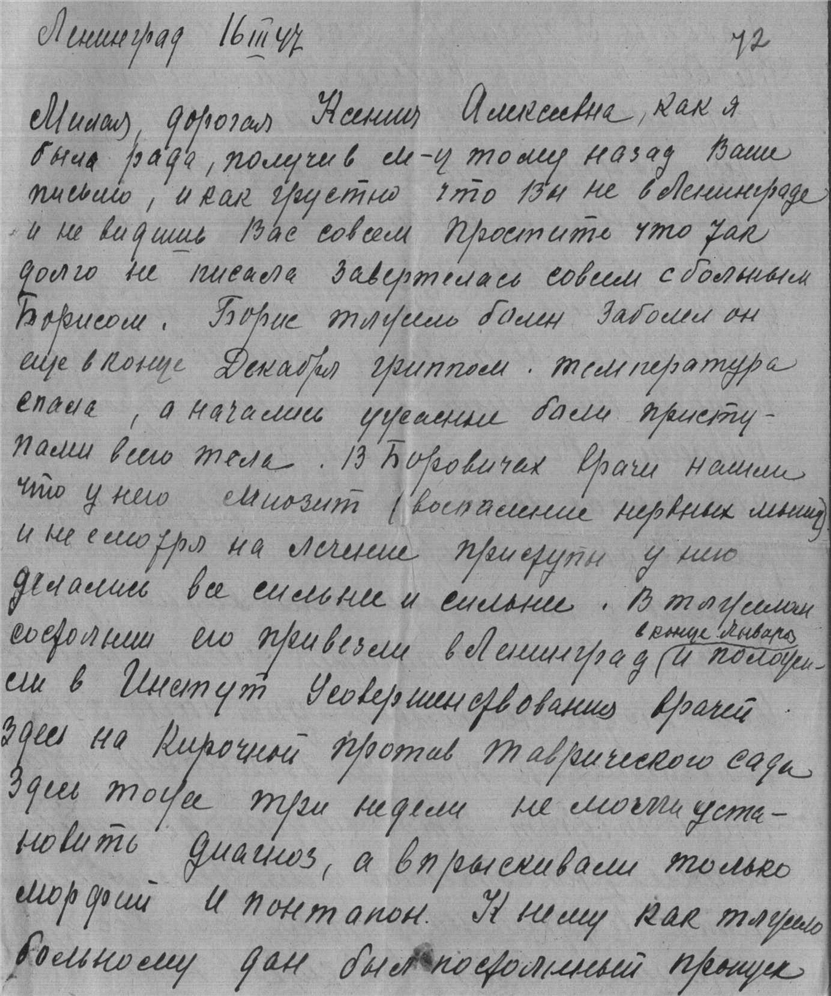 Ленинград 16 III 47
72
Милая, дорогая Ксения Алексеевна, как я
была рада, получив м-ц тому назад Ваше
письмо, и как грустно что Вы не в Ленинграде
и не видишь Вас совсем Простите что так
долго не писала завертелась совсем с больным
Борисом. Борис тяжело болен Заболел он
еще в конце Декабря гриппом. температура
спала, а начались ужасные боли присту-
пами всего тела. В Боровичах врачи нашли
что у него миозит (воспаление нервных мышц)
и не смотря на лечение приступы у него
делались все сильнее и сильнее. В тяжелом
в конце Января
состоянии его привезли в Ленинград и положи-
ли в Инстут Усовершенствования врачей
Здесь на Кирочной против Таврического сада
Здесь тоже три недели не могли уста-
новить диагноз, а впрыскивали только
морфий и понтапон. К нему как тяжело
больному дан был постоянный пропуск